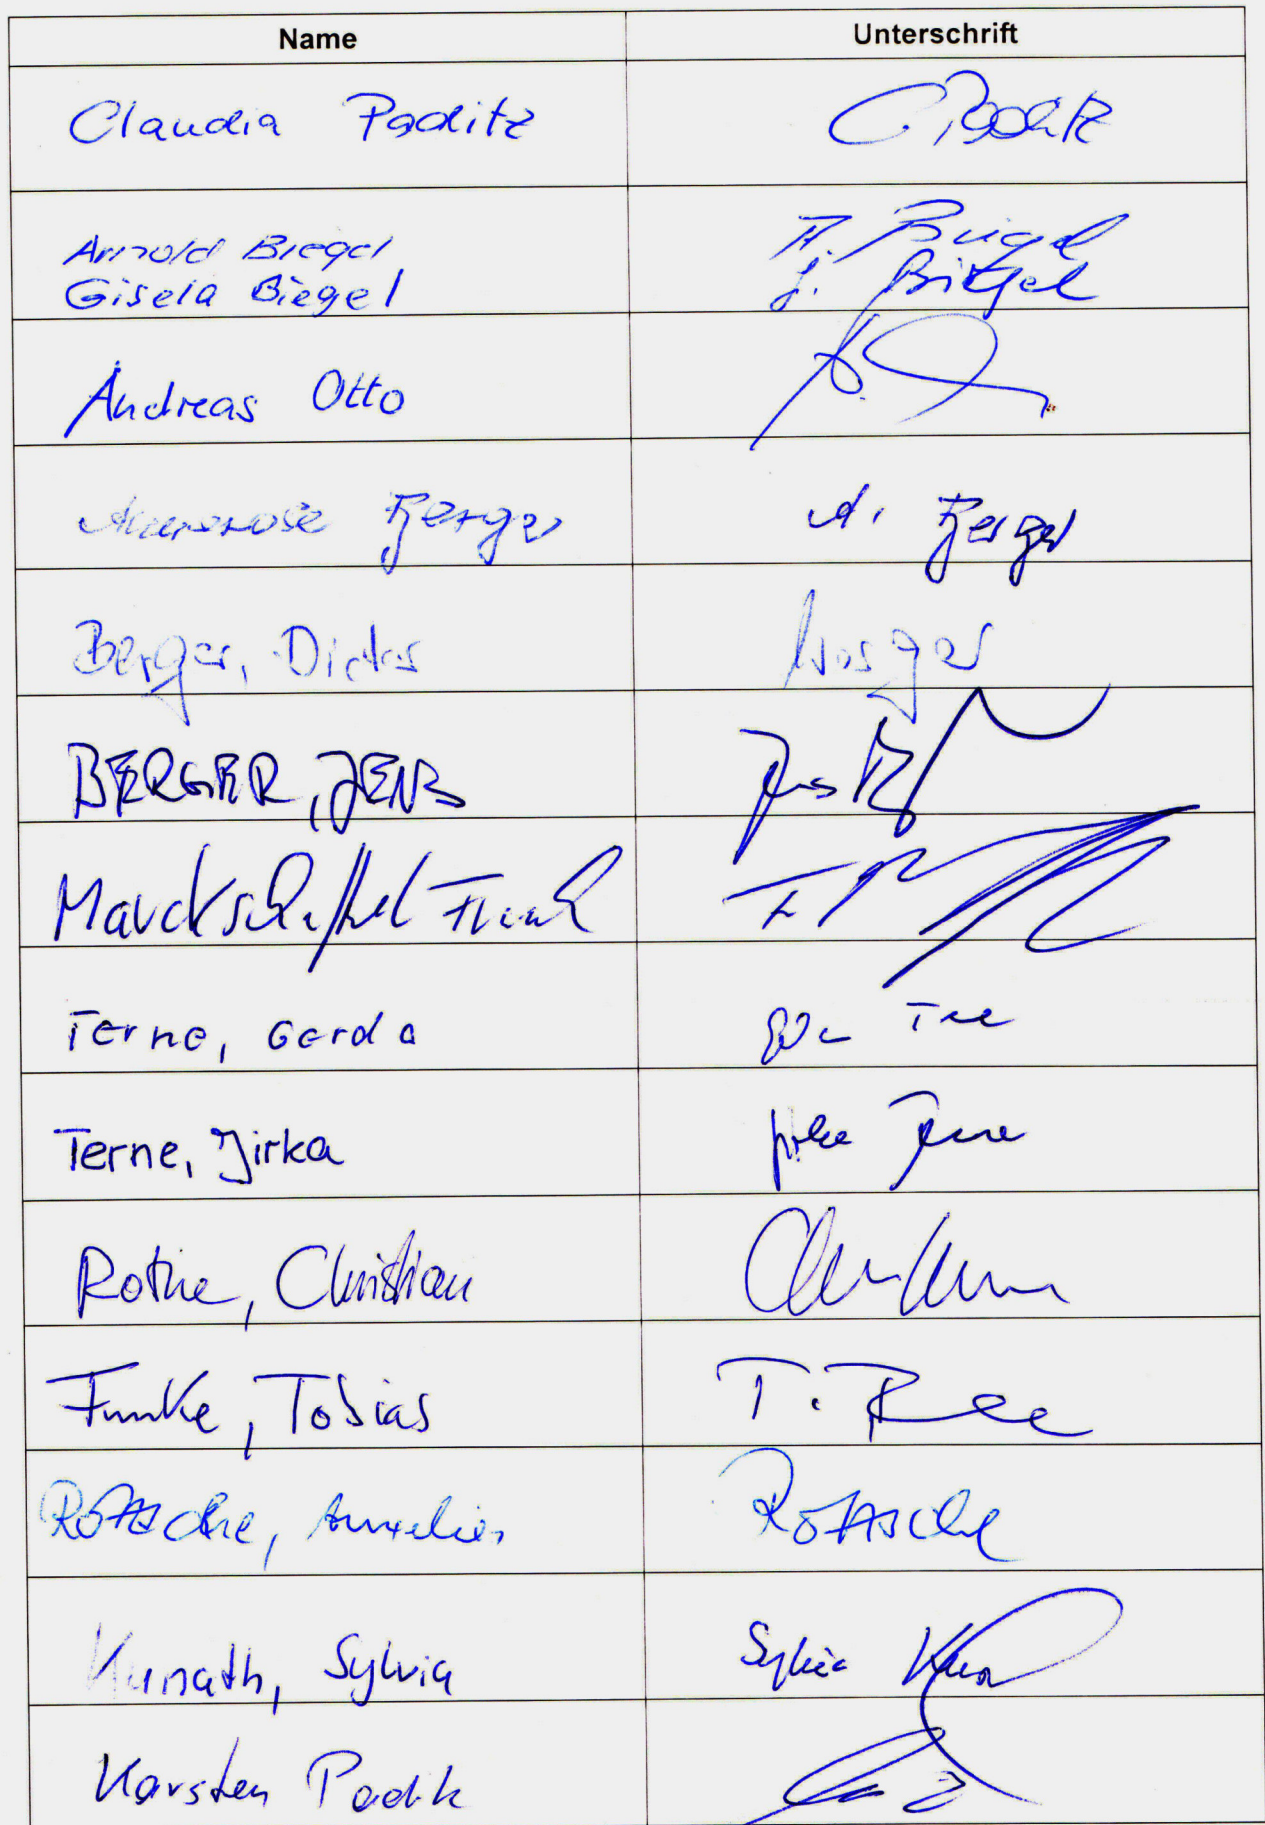 Name Unterschrift
Claudia Paditz C. Paditz
Arnold Biegel A. Biegel
Gisela Biegel G. Biegel
Andreas Otto
Annerose Berger A. Berger
Berger, Dieter Berger
BERGER, JENS Jens
Frank
Terne, Gerda
Terne, Jirka Jirka Terne
Rothe, Christian
Funke, Tobias T.
Rotzsche, Rotzsche
Kunath, Sylvia Sylvia
Karsten Paditz